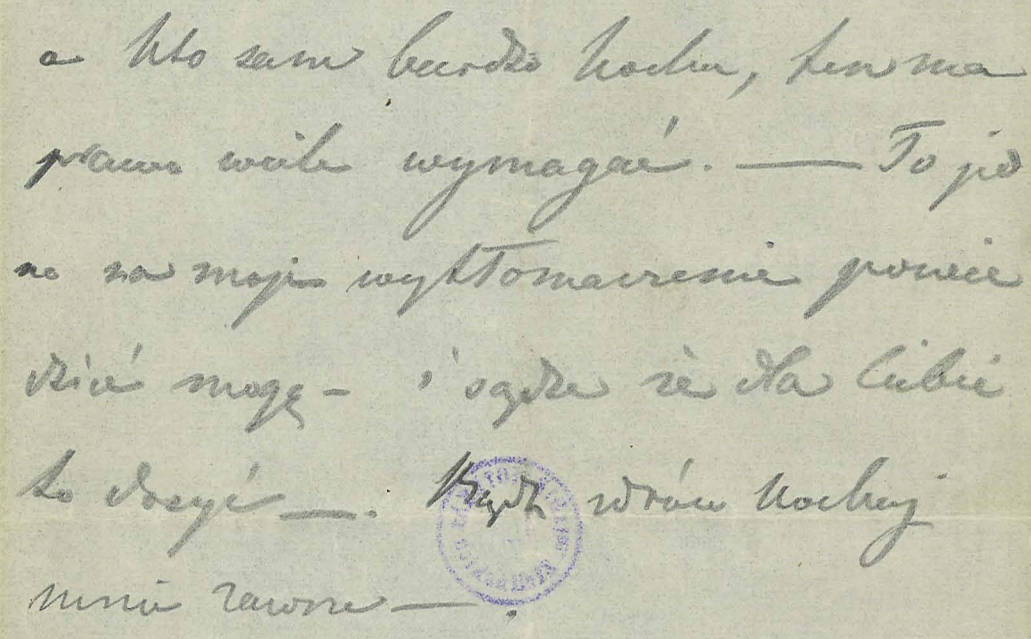 a kto sam bardzo kocha, ten ma
prawo wiele wymagać. — To jed
no na moje wytłomaczenie powie
dzieć mogę – i sądzę że dla Ciebie
to dosyć —. Bądź zdrów kochaj
mnie zawsze — .